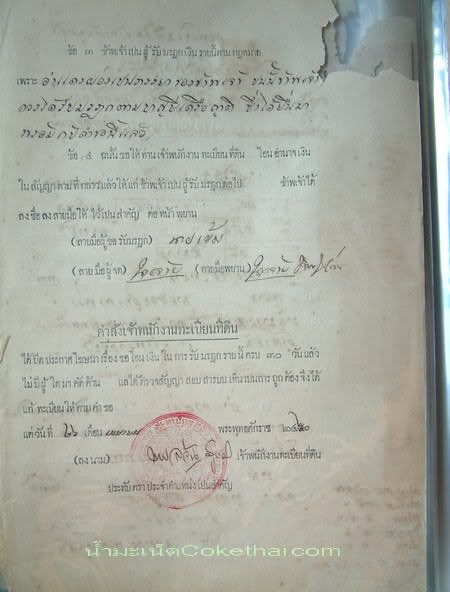 ข้อ ๓ ข้าพเจ้าเปนผู้รับมรฎกเงินรายนี้ตามกฎหมาย
เพราะ อำแดงผ่องเปนภรรยาของข้าพเจ้า ฉนั้นข้าพเจ้า
ควรได้รับมรฎกตามบาญชีเครือญาติ ซึ่งได้ยื่นมา
พร้อมกับคำขอนี้แล้ว
ข้อ ๔ ฉนั้นขอให้ท่านเจ้าพนักงานทะเบียนที่ดิน โอนอำนาจเงิน
ในสัญญาตามที่กล่าวแล้วให้แก่ข้าพเจ้าเปนผู้รับมรฎกต่อไป ข้าพเจ้าได้
ลงชื่อลงลายมือให้ไว้เปนสำคัญ ต่อหน้าพยาน
(ลายมือผู้ขอรับมรฎก) นายเข้ม
(ลายมือผู้จด) (ลายมือพยาน)
คำสั่งเจ้าพนักงานทะเบียนที่ดิน
ได้ปิดประกาศโฆษนาเรื่องขอโอนเงินในการรับมรฎกรายนี้ครบ ๓๐ วันแล้ว
ไม่มีผู้ใดมาคัดค้าน แลได้ตรวจสัญญาสอบสารบบเห็นเปนการถูกต้องจึ่งได้
แก้ทะเบียนให้ตามคำขอ
แต่วันที่ เดือน เมษายน พระพุทธศักราช ๒๔๖๐
(ลงนาม) เจ้าพนักงานทะเบียนที่ดิน
ประทับตราประจำตำแหน่งเปนสำคัญ
น้ำมะเน็ดCokethai.com